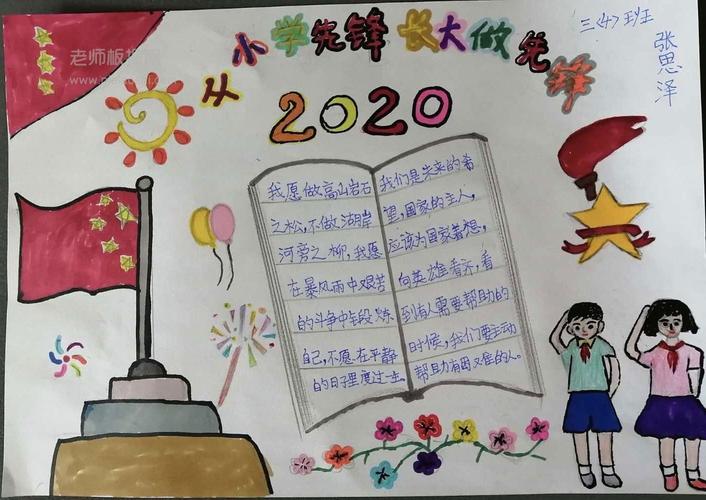 从小学先锋 长大做先锋
三〈4〉班
张思泽
2020
我愿做高山岩石
之松,不做湖岸
河旁之柳,我愿
在暴风雨中艰苦
的斗争中锻炼
自己,不愿在平静
的日子里度过一生。
我们是未来的希
望,国家的主人,
应该为国家着想,
向英雄看齐,看
到有人需要帮助的
时候,我们要主动
帮助有困难的人。
老师板报网